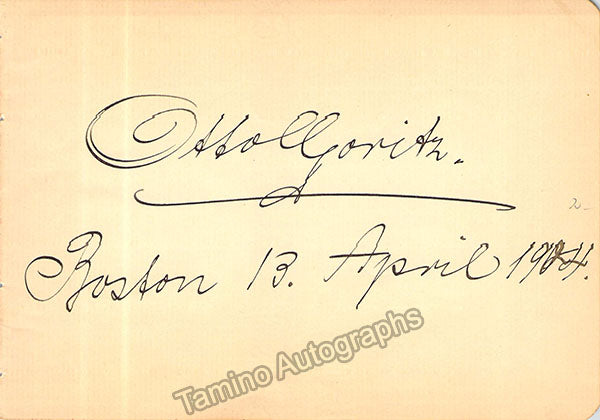 Otto Goritz.
2-
Boston 13. April 1904.
Tamino Autographs